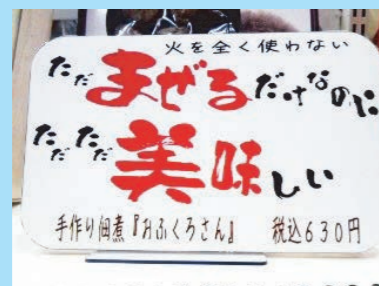 火を全く使わない
ただまぜるだけなのに
ただただ美味しい
手作り佃煮『おふくろさん』 税込630円